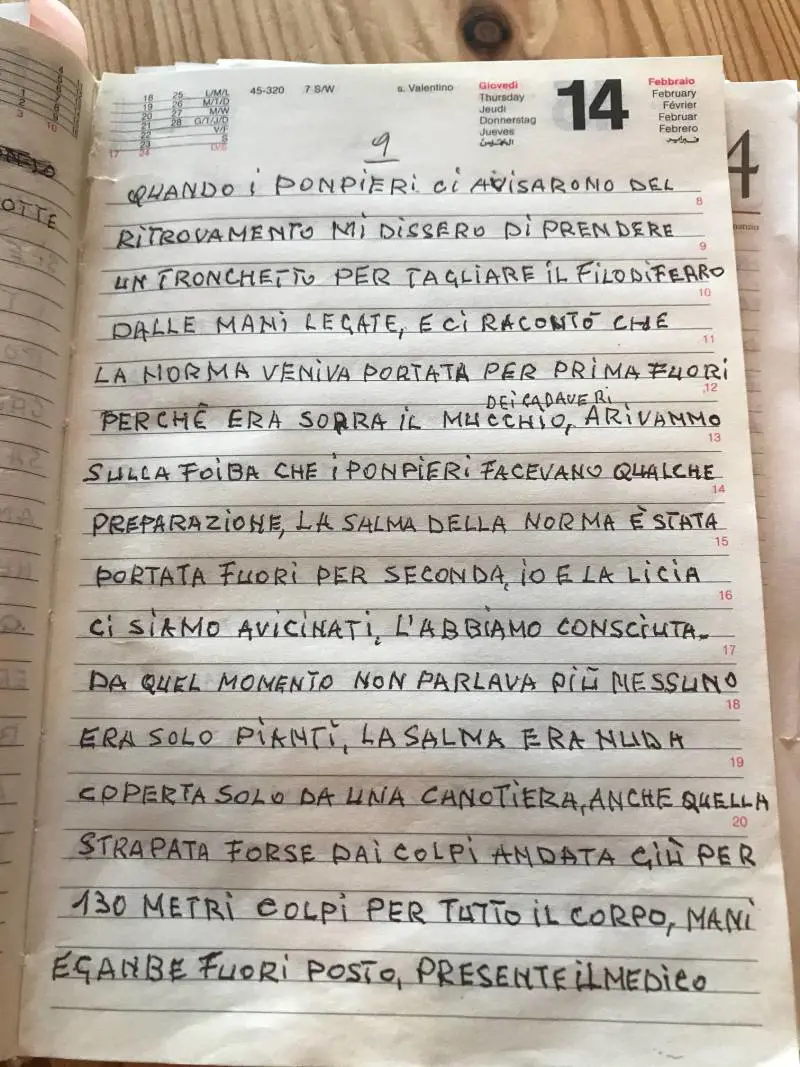 18 25 L/M/L 45-320 7 S/W s. Valentino Giovedì 14 Febbraio
19 26 M/T/D Thursday February
20 27 M/W Jeudi Février
21 28 G/T/J/D Donnerstag Februar
22 V/F Jueves Febrero
23 S
17 24 D/S
9
QUANDO i PONPIERI Ci AVISARONO DEL
8
RITROVAMENTO MI DISSERO DI PRENDERE
9
UN TRONCHETTO PER TAGLIARE IL FILO DI FERRO
10
DALLE MANI LEGATE, E CI RACONTÒ CHE
11
LA NORMA VENIVA PORTATA PER PRIMA FUORI
12
DEI CADAVERI
PERCHÊ ERA SOPRA IL MUCCHIO, ARIVAMMO
13
SULLA FOIBA CHE I PONPIERI FACEVANO QUALCHE
14
PREPARAZIONE, LA SALMA DELLA NORMA È STATA
15
PORTATA FUORI PER SECONDA, IO E LA LICIA
16
CI SIAMO AVICINATI, L'ABBIAMO CONSCIUTA.
17
DA QUEL MOMENTO NON PARLAVA PIÙ NESSUNO
18
ERA SOLO PIANTI, LA SALMA ERA NUDA
19
COPERTA SOLO DA UNA CANOTIERA, ANCHE QUELLA
20
STRAPATA FORSE DAI COLPI ANDATA GIÙ PER
130 METRI COLPI PER TUTTO IL CORPO, MANI
E GANBE FUORI POSTO, PRESENTE IL MEDICO
OTTE
4